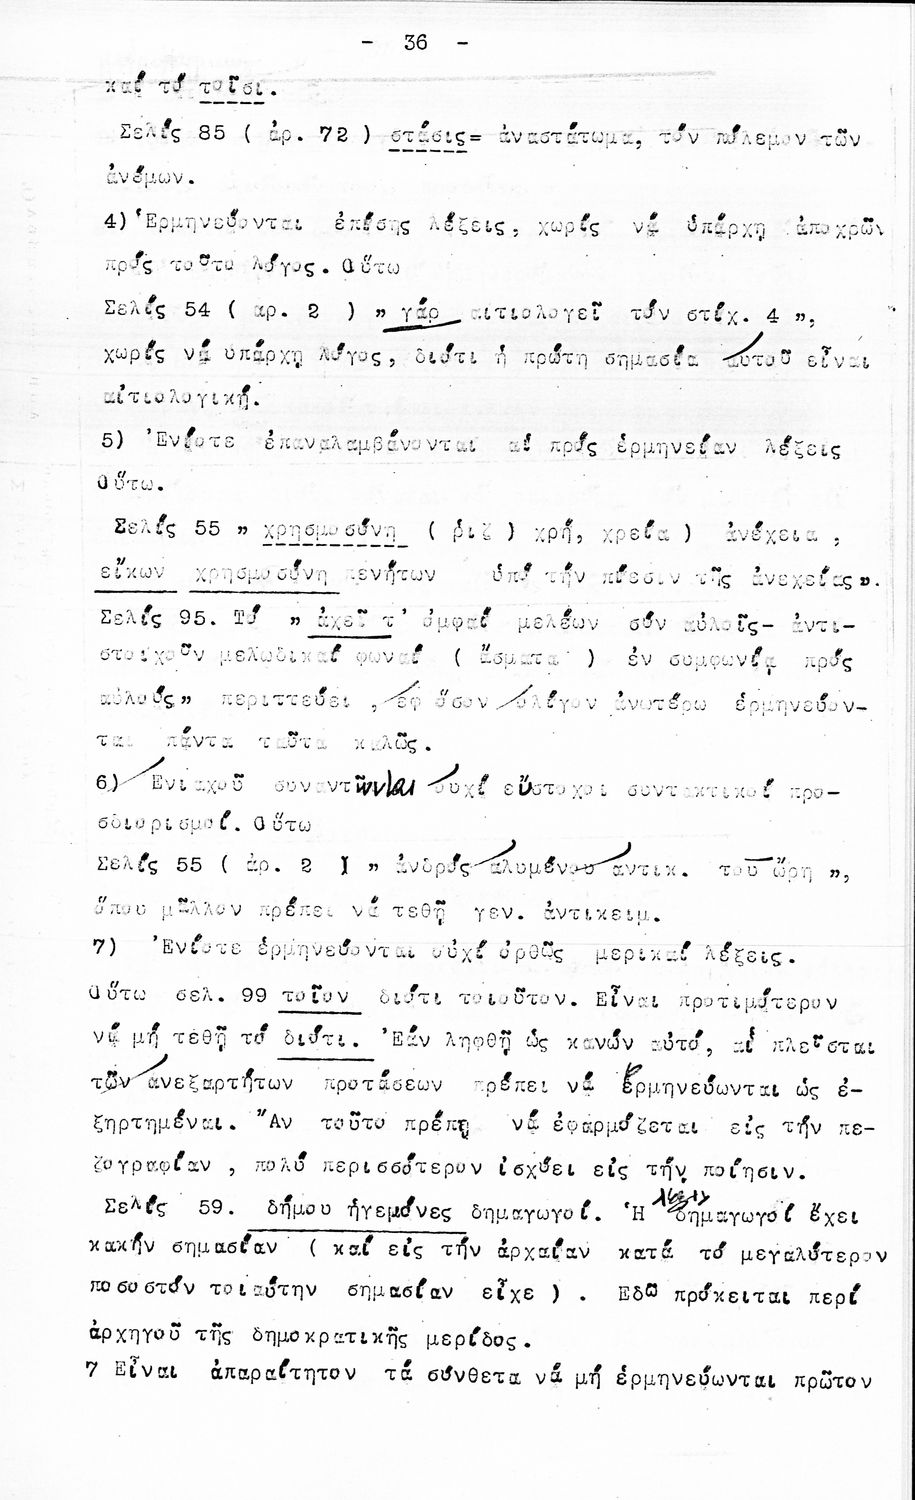 - 36 -
καί τό τοῖσι.
Σελίς 85 ( ἀρ. 72 ) στάσις= ἀναστάτωμα, τόν πόλεμον τῶν
ἀνέμων.
4) Ἑρμηνεύονται ἐπίσης λέξεις, χωρίς νά ὑπάρχῃ ἀποχρῶν
πρός τοῦτο λόγος. Οὕτω
Σελίς 54 ( ἀρ. 2 ) „ γάρ αἰτιολογεῖ τόν στίχ. 4 ",
χωρίς νά ὑπάρχῃ λόγος, διότι ἡ πρώτη σημασία αὐτοῦ εἶναι
αἰτιολογική.
5) Ἐνίοτε ἐπαναλαμβάνονται αἱ πρός ἑρμηνείαν λέξεις
Οὕτω.
Σελίς 55 „ χρησμοσύνη ( ῥιζ ) χρή, χρεία ) ἀνέχεια ,
εἴκων χρησμοσύνῃ πενήτων ὑπό τήν πίεσιν τῆς ἀνεχείας ".
Σελίς 95. Τό „ ἀχεῖ τ' ὀμφαί μελέων σύν αὐλοῖς- ἀντι-
στοιχοῦν μελωδικαί φωναί ( ἄσματα ) ἐν συμφωνίᾳ πρός
αὐλούς" περιττεύει , ἐφ ὅσον ὀλίγον ἀνωτέρω ἑρμηνεύον-
ται πάντα ταῦτα καλῶς.
6) Ἐνιαχοῦ συναντῶνται οὐχί εὔστοχοι συντακτικοί προ-
σδιορισμοί. Οὕτω
Σελίς 55 ( ἀρ. 2 ) „ ἀνδρός ἀλυμένου ἀντικ. τοῦ ὥρη ",
ὅπου μᾶλλον πρέπει νά τεθῇ γεν. ἀντικειμ.
7) Ἐνίοτε ἑρμηνεύονται οὐχί ὀρθῶς μερικαί λέξεις.
Οὕτω σελ. 99 τοῖον διότι τοιοῦτον. Εἶναι προτιμότερον
νά μή τεθῇ τό διότι. Ἐάν ληφθῇ ὡς κανών αὐτό, αἱ πλεῖσται
τῶν ἀνεξαρτήτων προτάσεων πρέπει νά ἑρμηνεύωνται ὡς ἐ-
ξηρτημέναι. Ἄν τοῦτο πρέπῃ νά ἐφαρμόζεται εἰς τήν πε-
ζογραφίαν , πολύ περισσότερον ἰσχύει εἰς τήν ποίησιν.
Σελίς 59. δήμου ἡγεμόνες δημαγωγοί. Ἡ λέξις δημαγωγοί ἔχει
κακήν σημασίαν ( καί εἰς τήν ἀρχαίαν κατά τό μεγαλύτερον
ποσοστόν τοιαύτην σημασίαν εἶχε ) . Εδῶ πρόκειται περί
ἀρχηγοῦ τῆς δημοκρατικῆς μερίδος.
7 Εἶναι ἀπαραίτητον τά σύνθετα νά μή ἑρμηνεύωνται πρῶτον